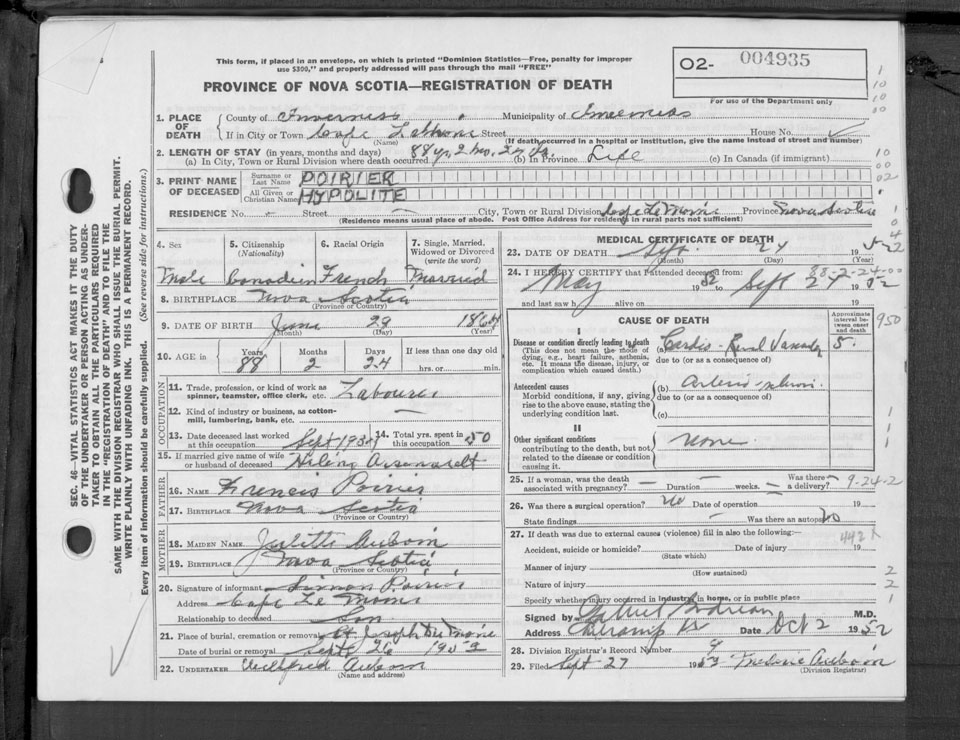 This form, if placed in an envelope, on which is printed "Dominion Statistics—Free, penalty for improper
use $300," and properly addressed will pass through the mail "FREE"
PROVINCE OF NOVA SCOTIA—REGISTRATION OF DEATH
O2- 004935
For use of the Department only
1. PLACE OF DEATH
County of Inverness Municipality of Inverness
If in City or Town Street House No.
(Name) (If death occurred in a hospital or institution, give the name instead of street and number)
2. LENGTH OF STAY (in years, months and days)
(a) In City, Town or Rural Division where death occurred 88 yr. 2 mo. 24 da. (b) in Province Life (c) In Canada (if immigrant)
3. PRINT NAME OF DECEASED
Surname or Last Name POIRIER
All Given or Christian Names HYPOLITE
RESIDENCE No. Street City, Town or Rural Division Cape Le Moine Province Nova Scotia
(Residence means usual place of abode. Post Office Address for residents in rural parts not sufficient)
4. Sex 5. Citizenship (Nationality) 6. Racial Origin 7. Single, Married, Widowed or Divorced (write the word)
Male Canadien French Married
8. BIRTHPLACE Nova Scotia
(Province or Country)
9. DATE OF BIRTH June 29 1864
(Month) (Day) (Year)
10. AGE in Years Months Days If less than one day old
88 2 24 hrs. or min.
OCCUPATION
11. Trade, profession, or kind of work as
spinner, teamster, office clerk, etc. Labourer
12. Kind of industry or business, as cotton-
mill, lumbering, bank, etc. —
13. Date deceased last worked
at this occupation Sept 193
14. Total yrs. spent in
this occupation 50
15. If married give name of wife
or husband of deceased Arsenault
FATHER
16. NAME Francis Poirier
17. BIRTHPLACE Nova Scotia
(Province or Country)
MOTHER
18. MAIDEN NAME Juliette Aucoin
19. BIRTHPLACE Nova Scotia
(Province or Country)
20. Signature of informant Simon Poirier
Address Cape Le Moine
Relationship to deceased Son
21. Place of burial, cremation or removal St Joseph Du Moine
Date of burial or removal Sept 26 1952
22. UNDERTAKER Willfred Aucoin
(Name and address)
MEDICAL CERTIFICATE OF DEATH
23. DATE OF DEATH Sept. 24 1952
(Month) (Day)
88-2-24-00
24. I HEREBY CERTIFY that I attended deceased from:
May 1952 Sept 24 1952
and last saw h alive on 19
CAUSE OF DEATH
Approximate interval between onset and death
I
Disease or condition directly leading to death (a) Cardio-Renal Vascular 5.
(This does not mean the mode of dying, e.g., heart failure, asthenia, etc. It means the disease, injury, or complication which caused death.)
due to (or as a consequence of)
Antecedent causes (b)
Morbid conditions, if any, giving rise to the above cause, stating the underlying condition last.
due to (or as a consequence of)
(c)
II
Other significant conditions none
contributing to the death, but not related to the disease or condition causing it.
950
25. If a woman, was the death associated with pregnancy? — Duration — weeks. Was there a delivery? —
9-24-2
26. Was there a surgical operation? No Date of operation 19
State findings — Was there an autopsy? No
27. If death was due to external causes (violence) fill in also the following:—
442X
Accident, suicide or homicide? Date of injury 19
(State which)
Manner of injury
(How sustained)
Nature of injury
Specify whether injury occurred in industry, in home, or in public place
Signed by M.D.
Address Cheticamp NS Date Oct 2 1952
28. Division Registrar's Record Number 9
29. Filed Sept 27 195 Aucoin
(Division Registrar)
SEC. 46—VITAL STATISTICS ACT MAKES IT THE DUTY
OF THE UNDERTAKER OR PERSON ACTING AS UNDER-
TAKER TO OBTAIN ALL THE PARTICULARS REQUIRED
IN THE "REGISTRATION OF DEATH" AND TO FILE THE
SAME WITH THE DIVISION REGISTRAR WHO SHALL ISSUE THE BURIAL PERMIT.
WRITE PLAINLY WITH UNFADING INK. THIS IS A PERMANENT RECORD.
Every item of information should be carefully supplied. (See reverse side for instructions.)